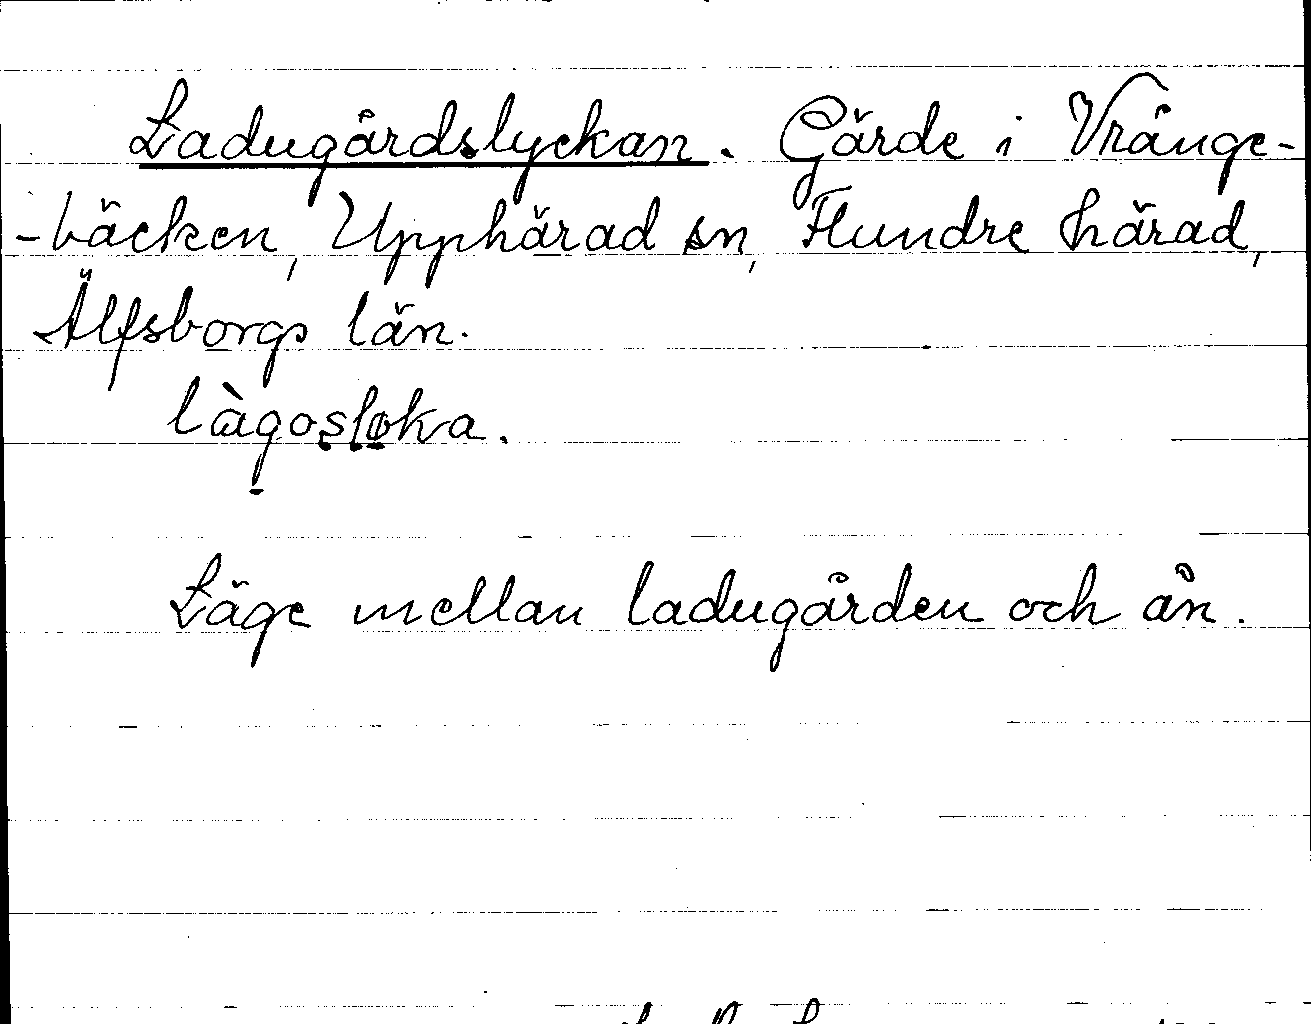 Ladugårdslyckan. Gärde i Vränge-
-bäcken, Upphärad sn, Flundre härad,
Älfsborgs län.
làgosloka.
Läge mellan ladugården och ån.